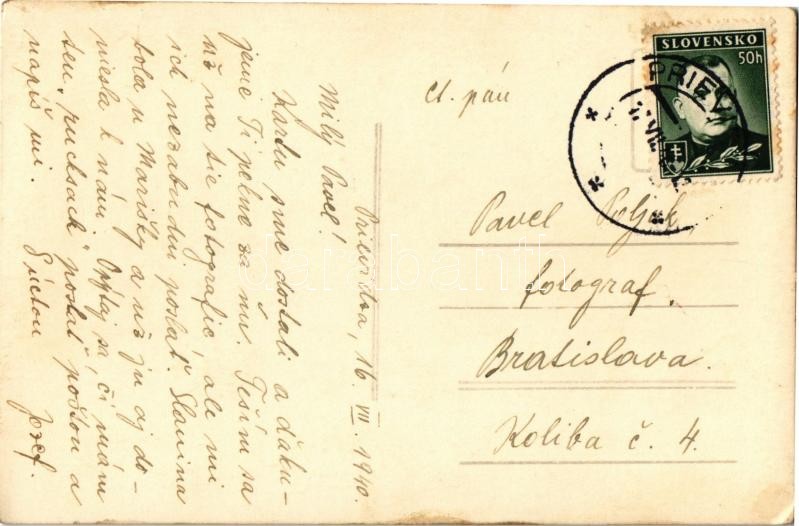 Prievidza, 16. VII. 1940.
Milý Pavel!
Kartu sme dostali a ďaku-
jeme Ti pekne za ňu. Teším sa
už na tie fotografie, ale mi
ich nezabudni poslať. Slanina
bola u Marišky a už ju aj do-
niesla k nám. Opýtaj sa, či mám
ten „rucksack“ poslať poštou a
napíš mi.
Jozef.
čt. pán
Pavel Poljak,
fotograf.
Bratislava.
Koliba č. 4.
SLOVENSKO
50h
PRIEV
darabanth